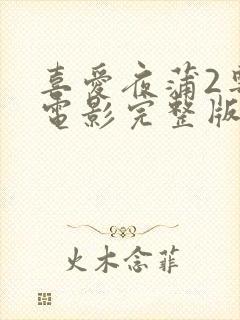 喜愛夜蒲2
電影完整版
火木念菲